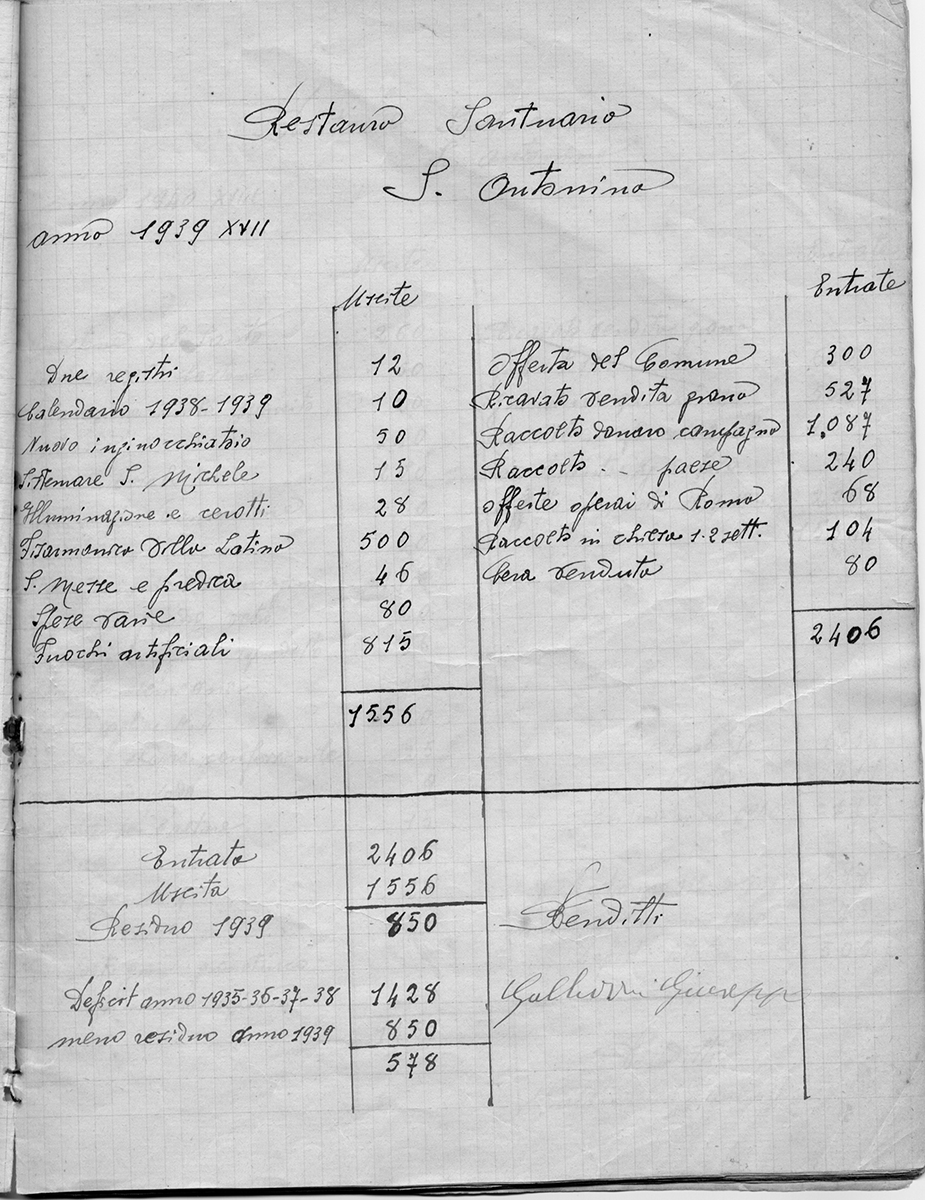 Restauro Santuario
S. Antonino
anno 1939 XVII
Uscite
Entrate
Due registri 12
Calendario 1938-1939 10
Nuovo inginocchiatoio 50
Sistemare S. Michele 15
Illuminazione e cerotti 28
Fisarmonica Villa Latina 500
S. Messe e predica 46
Spese varie 80
Fuochi artificiali 815
1556
Offerta del Comune 300
Ricavato vendita grano 527
Raccolto danaro campagna 1.087
Raccolto .. paese 240
Offerte operai di Roma 68
Raccolto in chiesa 1-2 sett. 104
Cera venduta 80
2406
Entrata 2406
Uscita 1556
Residuo 1939 850
Venditti
Deficit anno 1935-36-37-38 1428
meno residuo anno 1939 850
578
Giuseppe